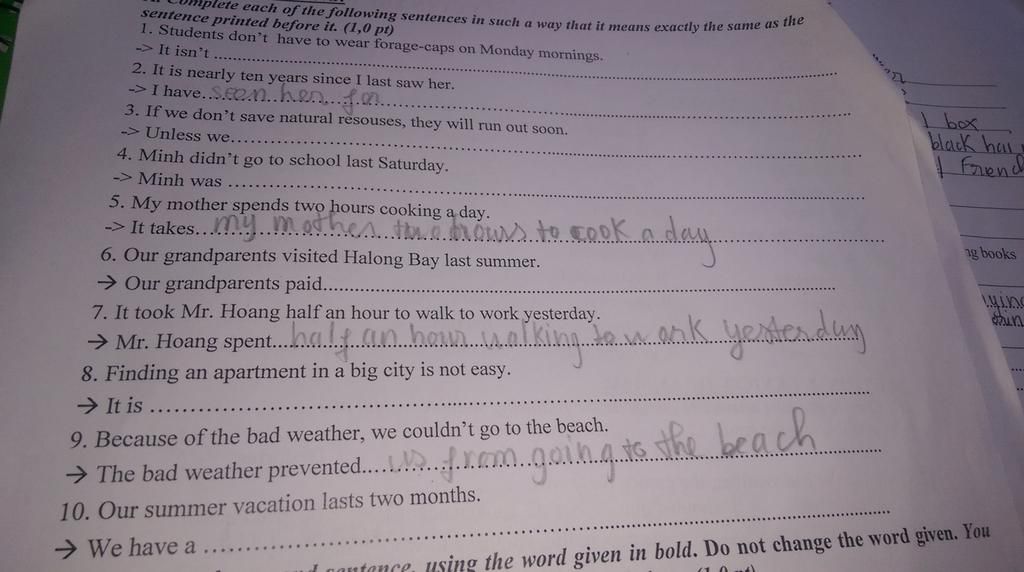 Complete each of the following sentences in such a way that it means exactly the same as the
sentence printed before it. (1,0 pt)
1. Students don't have to wear forage-caps on Monday mornings.
-> It isn't ........................................
2. It is nearly ten years since I last saw her.
-> I have..seen her for........................................
3. If we don't save natural resouses, they will run out soon.
-> Unless we........................................
4. Minh didn't go to school last Saturday.
-> Minh was ........................................
5. My mother spends two hours cooking a day.
-> It takes...my mother two hours to cook a day........................................
6. Our grandparents visited Halong Bay last summer.
→ Our grandparents paid........................................
7. It took Mr. Hoang half an hour to walk to work yesterday.
→ Mr. Hoang spent...half an hour walking to work yesterday
8. Finding an apartment in a big city is not easy.
→ It is ........................................
9. Because of the bad weather, we couldn't go to the beach.
→ The bad weather prevented....us from going to the beach........................................
10. Our summer vacation lasts two months.
→ We have a ........................................
sentence, using the word given in bold. Do not change the word given. You
1 box
black hai
Friend
ng books